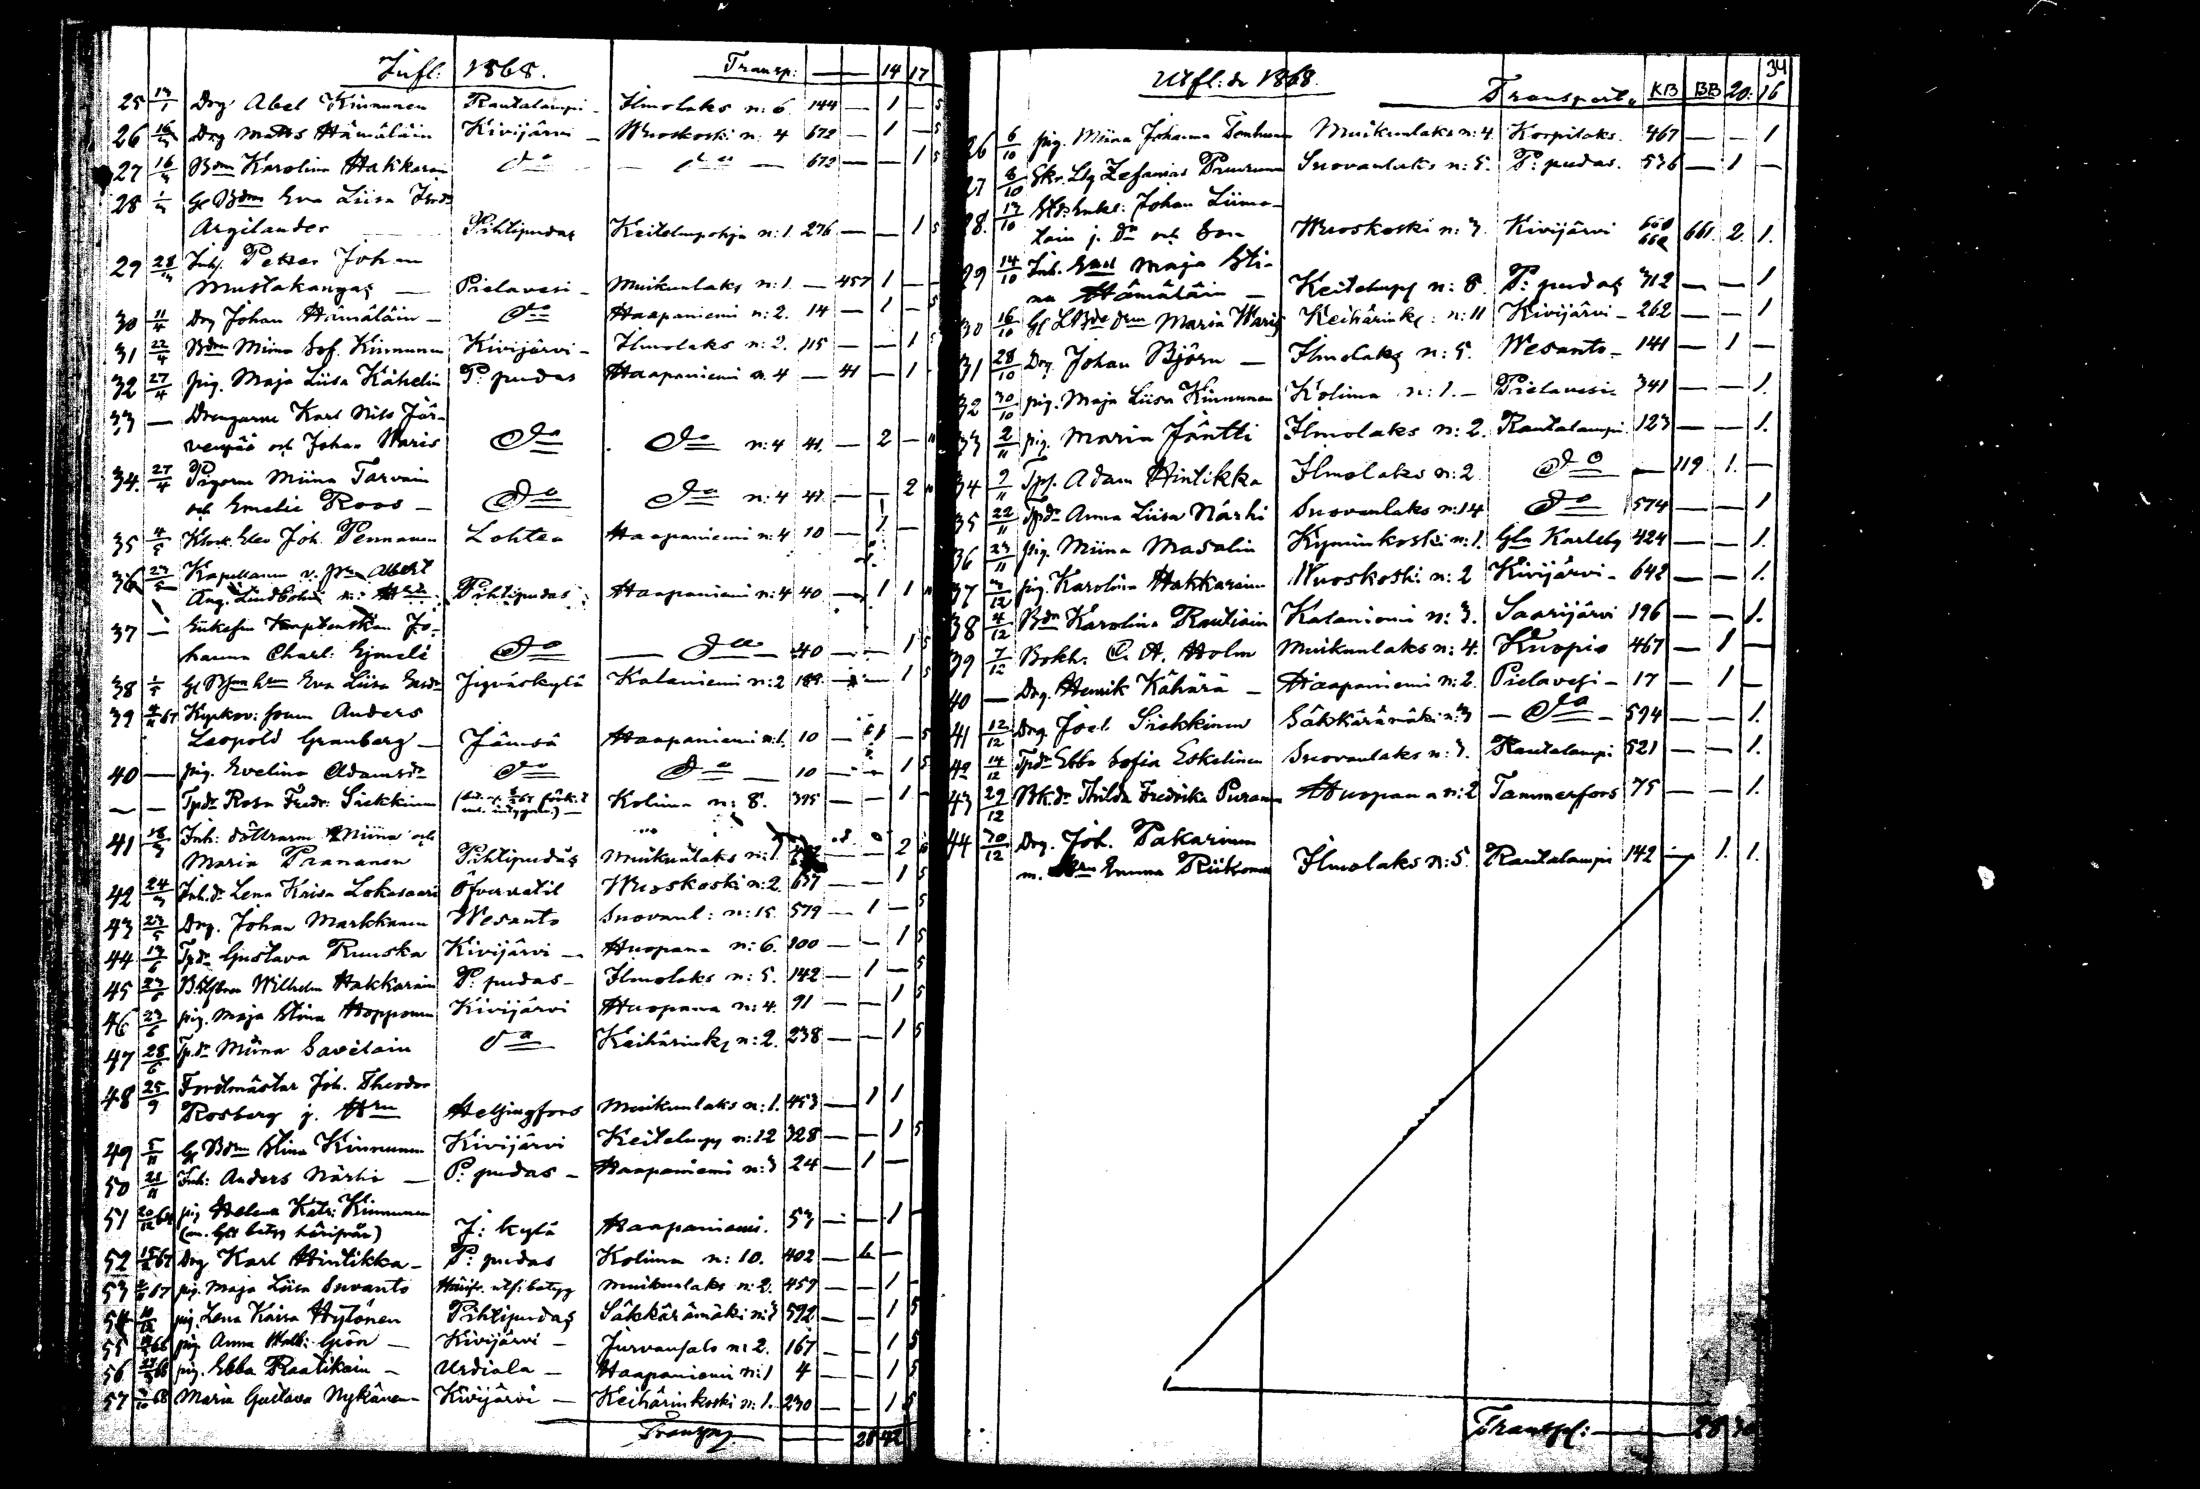 Infl: 1868. Transp: — — 14 17
25 13/1 Drg Abel Kinnunen Rautalampi - Ilmolaks n: 6 144 — 1 — 5
26 Drg Matts Hämäläin Kivijärvi - Wuoskoski n: 4 672 — 1 — 5
27 Bdm Karolina Hakkarain do — do — 672 — — 1 5
28 Gl Bdm Eva Liisa
Argilander Pihtipudas Keitelepohja n: 1 276 — — 1 5
29 Inh. Petter Johan
Mustakangas — Pielavesi - Muikunlaks n: 1. — 457 1 —
30 11/4 Drg Johan Hämäläin — do Haapaniemi n: 2. 14 — 1 — 5
31 22/4 Bdm Miina Sof. Kinnunen Kivijärvi - Ilmolaks n: 2. 115 — — 1
32 27/4 pig. Maja Liisa Kähelin P: pudas Haapaniemi n. 4 — 41 — 1
33 — Drengarne Karl Nils Jär-
venpää och Johan Waris do do n: 4 41. — 2 —
34. 27/4 Pigorna Miina Tarvain
och Emelie Roos — do do n: 4 41 — — 2
35 4/5 Klock. Elev Joh. Pennanen Lohtea Haapaniemi n: 4 10 — 1 —
36 Kapellanen v. Albert
Aug. Lindholm Pihtipudas Haapaniemi n: 4 40 — 1 1
37 — Enkefru Kaptenskan Jo-
hanna Charl: do — do — 40 — — 1 5
38 Eva Liisa Jyväskylä Kalaniemi n: 2 189 — — 1 5
39 Anders
Leopold Granberg — Jämsä Haapaniemi n: 1. 10 — 1 — 5
40 — pig. Evelina Adamsdr do do — 10 — — 1 5
— — Tpdr Rosa Fredr: Siekkinen Kolima n: 8. 395 — — 1
41 Inh: döttrarne Miina och
Maria Prananen Pihtipudas Muikunlaks n: 1. — — 2
42 Inh. dr Lena Kaisa Lokasaari Öfvervetil Wuoskoski n: 2. 637 — — 1 5
43 23/5 Drg. Johan Markkanen Wesanto Suovanl: n: 15. 579 — 1 — 5
44 13/6 Tpdr Gustava Ruuska Kivijärvi — Huopana n: 6. 100 — — 1 5
45 23/6 Wilhelm Hakkarain P: pudas - Ilmolaks n: 5. 142 — 1 — 5
46 23/6 pig. Maja Stina Hopponen Kivijärvi Huopana n: 4. 91 — — 1 5
47 28/6 Tpdr Miina Savelain do Keihärinkz n: 2. 238 — — 1 5
48 25/9 Forstmästar Joh. Theodor
Rosberg j. Hru Helsingfors Muikunlaks n: 1. 453 — 1 1
49 5/11 Gl Bdm Stina Kinnunen Kivijärvi Keitelepy n: 12 328 — — 1 5
50 21/11 Inh: Anders Närhi — P: pudas - Haapaniemi n: 3 24 — 1 —
51 20/12 64 pig Helena Katr: Kinnunen
betyg härifrån) J: kylä Haapaniemi. 53 — — 1 —
52 67 Drg Karl Hintikka - P: pudas Kolima n: 10. 402 — 1 —
53 67 pig. Maja Liisa Suvanto Härifr. utfl: betyg Muikunlaks n: 2. 459 — — 1 —
54 10/12 pig. Lena Kaisa Hytönen Pihtipudas Säkkärämäki n: 3 592 — — 1 5
55 66 pig Anna Grön — Kivijärvi — Jurvansalo n: 2. 167 — — 1 5
56 66 pig. Ebba Raatikain — Urdiala — Haapaniemi n: 1 4 — — 1 5
57 68 Maria Gustava Nykänen — Kivijärvi — Keihärinkoski n: 1. 230 — — 1 5
Transp. — 28 42
34
Utfl: de 1868. Transport. KB BB 20. 16
26 6/10 pig. Miina Johanna Tenhunen Muikunlaks n: 4. Korpilaks. 467 — — 1
27 8/10 Zefanias Puurunen Suovanlaks n: 5. P: pudas. 536 — 1 —
28. 13/10 Johan Liima-
tain j. Dr och Son Wuoskoski n: 3. Kivijärvi 660 661. 2. 1.
29 14/10 Inh. Enk Maja Sti-
na Hämäläin — Keitelepy n: 8. P: pudas 312 — — 1
30 16/10 Maria Waris Keihärinkz: n: 11 Kivijärvi - 262 — — 1
31 28/10 Drg Johan Björn — Ilmolaks n: 5. Wesanto - 141 — 1 —
32 30/10 pig. Maja Liisa Kinnunen Kolima n: 1. — Pielavesi 341 — — 1.
33 2/11 pig. Maria Jäntti Ilmolaks n: 2. Rautalampi 123 — — 1.
34 9/11 Tpf. Adam Hintikka Ilmolaks n: 2 do — 119. 1. —
35 22/11 Tpdr Anna Liisa Närhi Suovanlaks n: 14 do 574 — — 1
36 23/11 pig. Miina Masalin Kyminkoski n: 1. Gla Karleby 424 — — 1.
37 3/12 pig. Karolina Hakkarain Wuoskoski n: 2 Kivijärvi - 642 — — 1.
38 4/12 Bdr Karolina Rautiain Kalaniemi n: 3. Saarijärvi 196 — — 1.
39 7/12 Bokh. C. A. Holm Muikunlaks n: 4. Kuopio 467 — 1 —
40 — Drg. Henrik Kähärä — Haapaniemi n: 2. Pielavesi - 17 — 1 —
41 12/12 Drg. Joel Siekkinen Säkkärämäki n: 3 — do — 594 — — 1.
42 14/12 Tpdr Ebba Sofia Eskelinen Suovanlaks n: 3. Rautalampi 521 — — 1.
43 29/12 Hilda Fredrika Puranen Huopana n: 2 Tammerfors 75 — — 1
44 30/12 Drg. Joh. Pakarinen
m. Hru Emma Riikonen Ilmolaks n: 5. Rautalampi 142 — 1. 1.
Transp: — 28 30